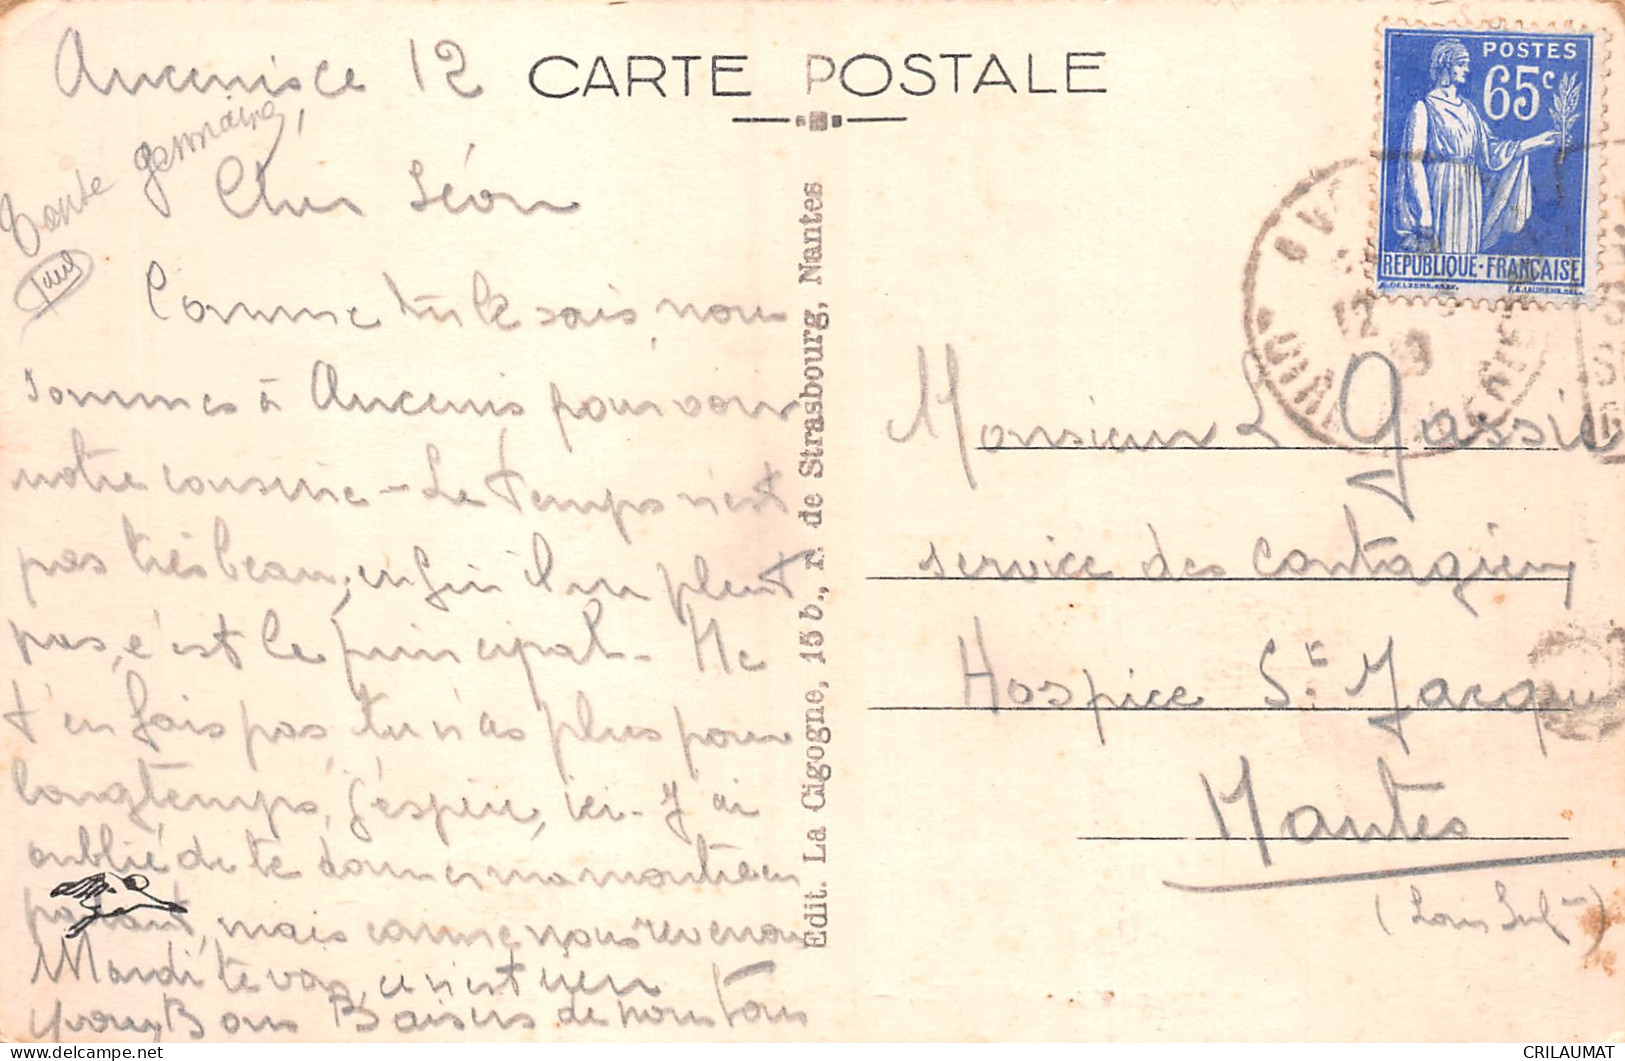 Ancenis ce 12
CARTE POSTALE
Tante germaine,
Paul
Cher Léon
Comme tu le sais nous
sommes à Ancenis pour voir
notre cousine - Le temps n'est
pas très beau, enfin il ne pleut
pas, c'est le principal - Ne
t'en fais pas, tu n'as plus pour
longtemps, j'espère, ici - J'ai
oublié de te donner ma montre en
partant, mais comme nous revenons
Mardi te voir, ce n'est rien
Bons Baisers de nous tous
Edit. La Cigogne, 15 b., r. de Strasbourg, Nantes
POSTES
65c
REPUBLIQUE-FRANÇAISE
12
Monsieur L Gassie
service des contagieux
Hospice St. Jacques
Nantes
(Loire Inf-)
CRILAUMAT